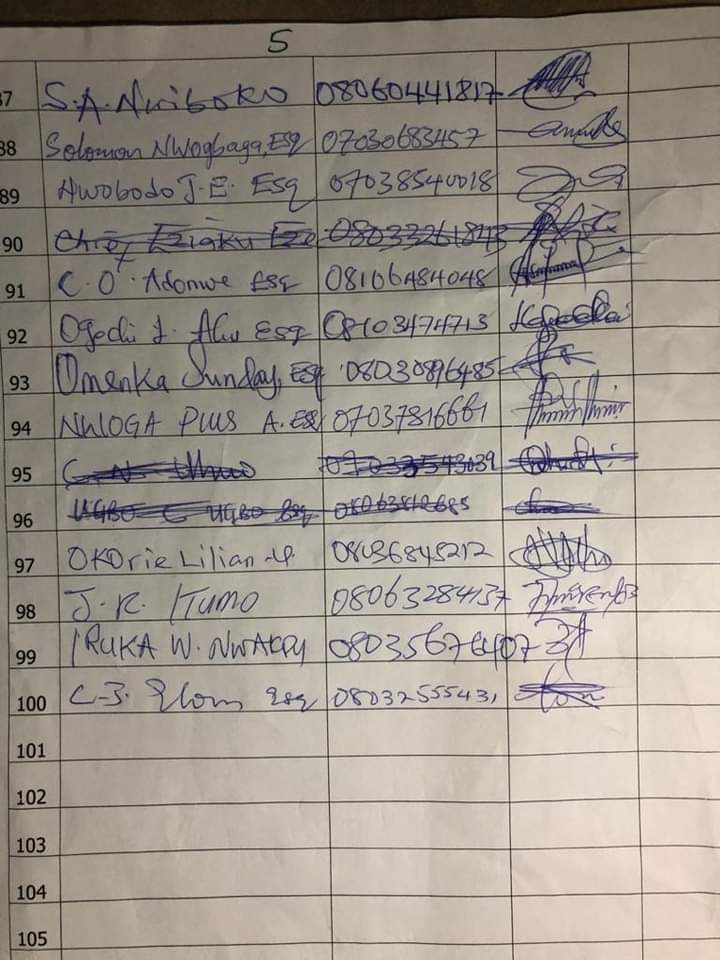 5
87 S.A. Nwiboko 08060441817
88 Solomon Nwogbaga, Esq 07030683457
89 Awobodo J.E. Esq 07038540018
90 08033261843
91 C.O. Adonwe Esq 08106484048
92 Ogechi I. Alu Esq 08103474713
93 Omenka Sunday, Esq 08030896485
94 NWOGA PIUS A. ESQ 07037816661
95 07033543039
96 UGBO C UGBO Esq 08063812685
97 OKOrie Lilian 08036845212
98 J.R. ITUMO 08063284137
99 IRUKA W. NWAKPU 08035676407
100 C-J. Elom Esq 08032555431
101
102
103
104
105